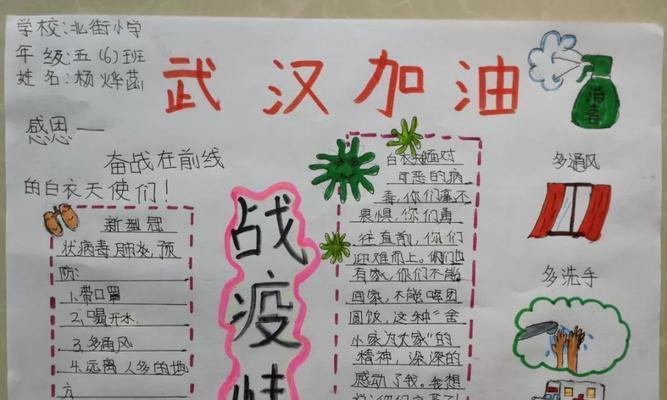 学校:北街小学
年级:五(6)班
姓名:杨烨菡
武汉加油
消毒
感恩—
奋战在前线
的白衣天使们!
新型冠
状病毒肺炎,预
防:
1.带口罩
2.喝开水
3.多通风
4.远离人多的地
方
战
疫
情
面对
可恶的病
毒,你们毫不
畏惧,你们勇
往直前,你们
迎难而上。你们也
有家,你们不能
回家,不能喝团
圆饭,这种“舍
小家为大家”的
精神,深深的
感动了我。我想
说:你们辛苦了!
多通风
多洗手